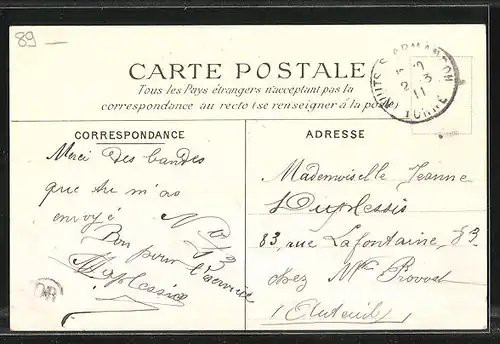 89
CARTE POSTALE
Tous les Pays étrangers n'acceptant pas la
correspondance au recto (se renseigner à la poste)
NUITS-S-ARMANÇON
YONNE
CORRESPONDANCE
Merci des bandes
que tu m'as
envoyé
Bon pour l'arrivée
Duplessis
ADRESSE
Mademoiselle Jeanne
Duplessis
83, rue Lafontaine, 83
chez Mme Provost
Auteuil